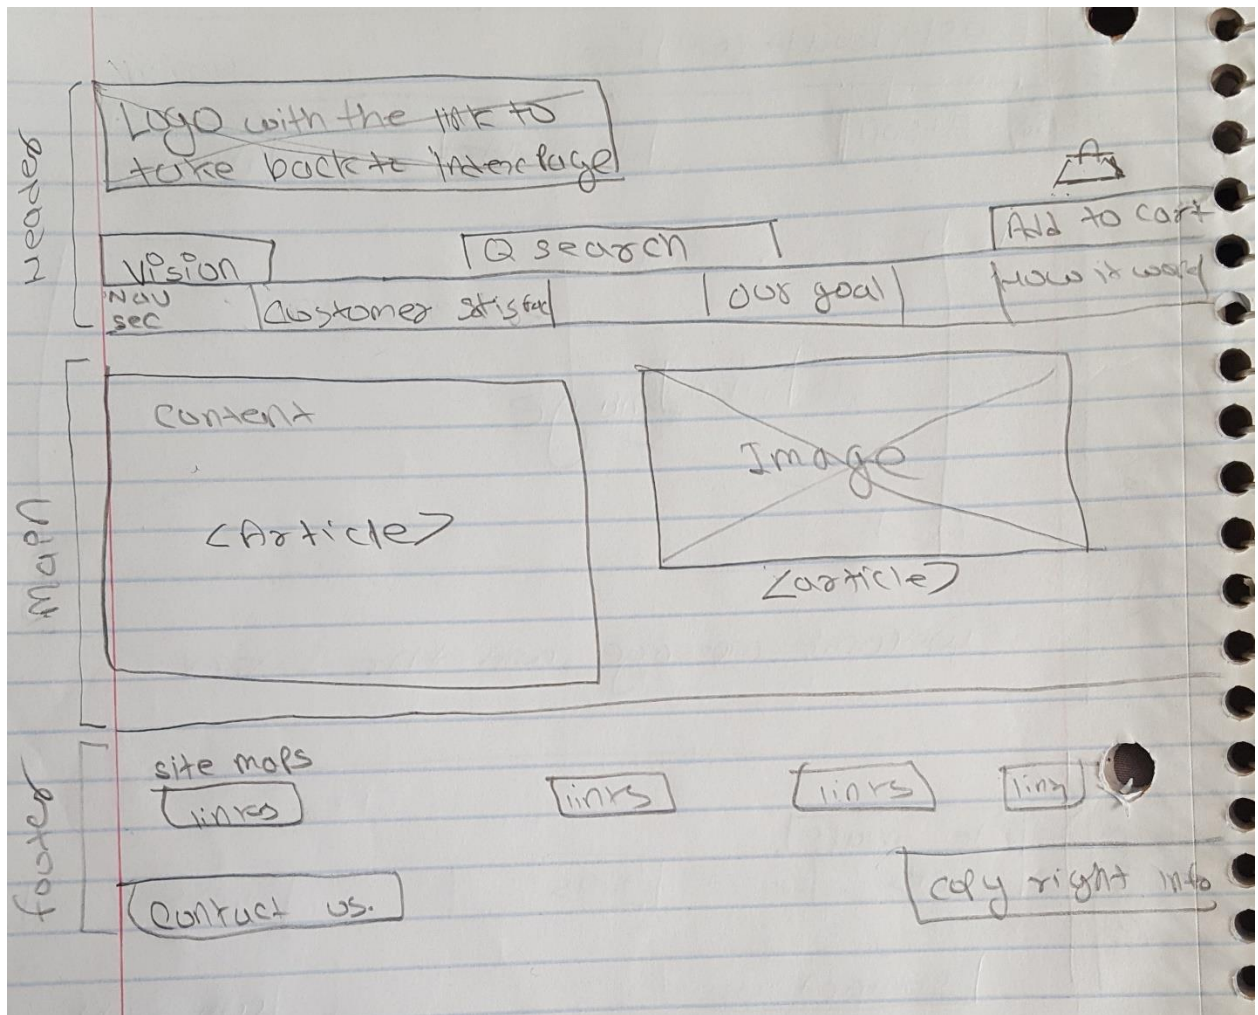 Header
Logo with the link to
take back to index page
Add to cart
Vision
Q search
Nav
sec
Customer satisfac
our goal
How it work
Main
Content
<Article>
Image
<article>
footer
site maps
links
links
links
link
Contact us.
copy right info